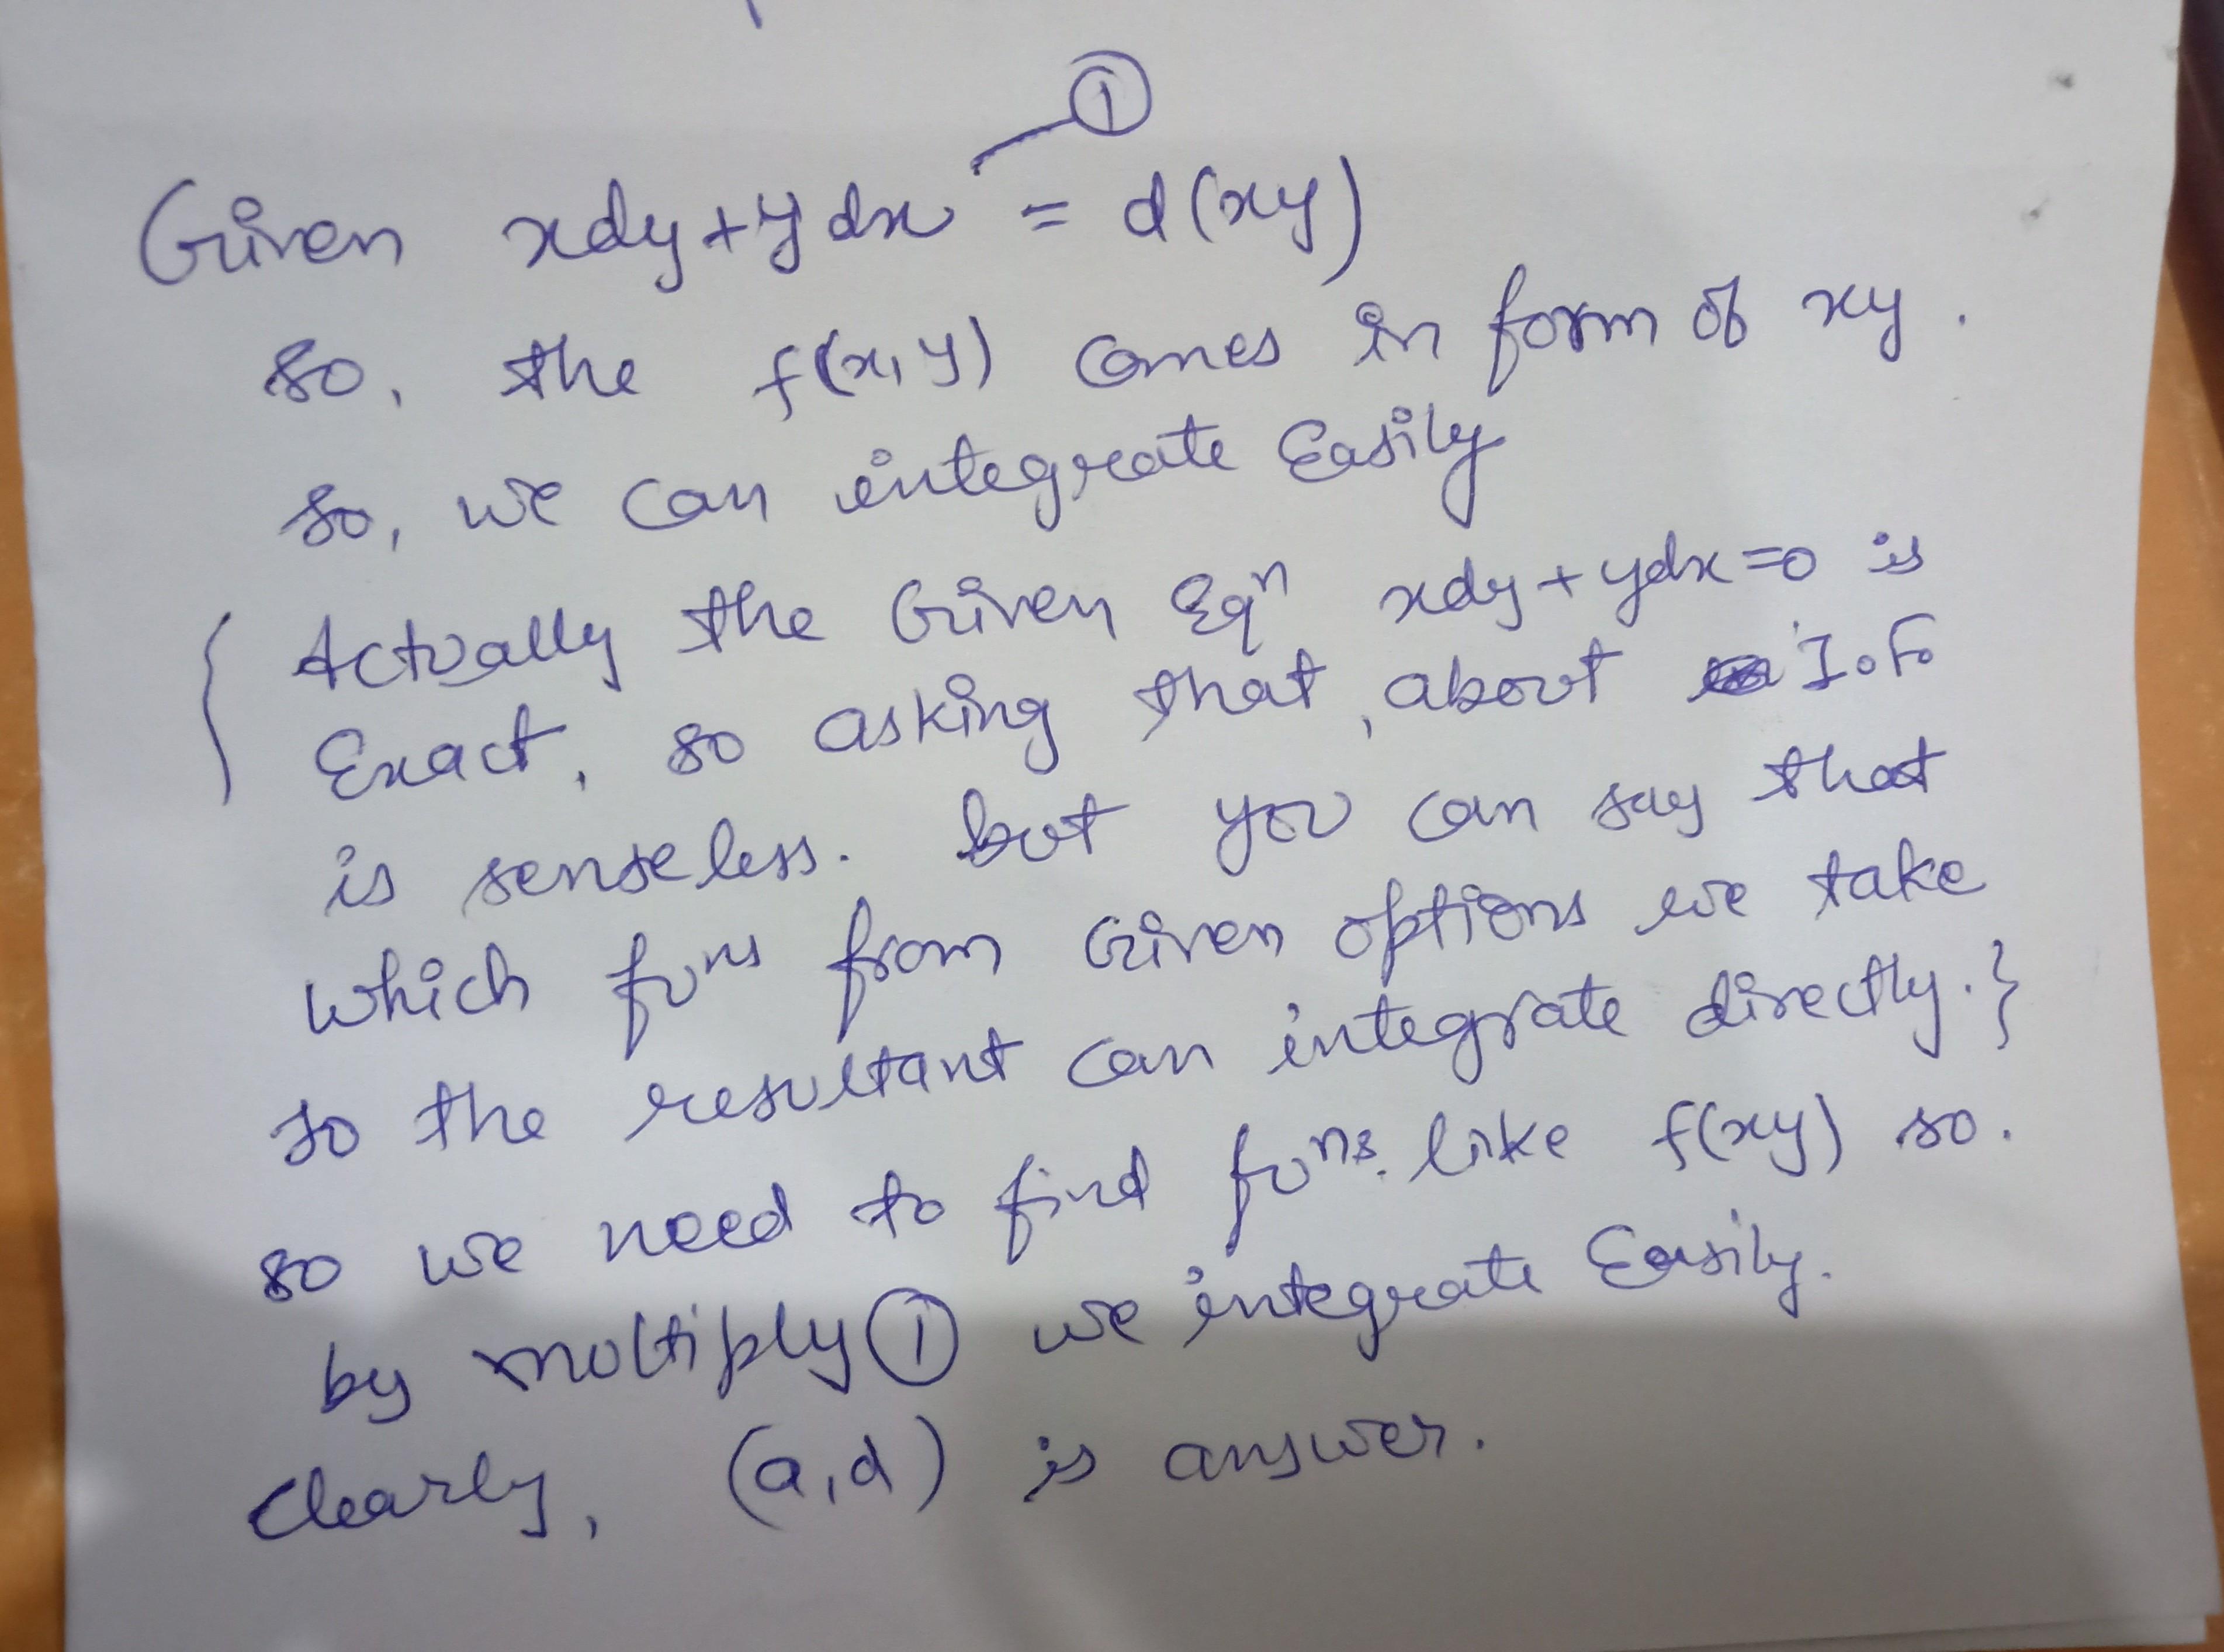 ①
Given xdy+ydx = d(xy)
so, the f(x,y) comes in form of xy.
so, we can integrate Easily
{ Actually the Given Eqⁿ xdy+ydx=0 is
Exact, so asking that, about I.F.
is senseless. but you can say that
which fuⁿˢ from Given options we take
so the resultant can integrate directly.}
so we need to find fuⁿˢ. like f(xy) so.
by multiply ① we integrate Easily.
Clearly, (a,d) is answer.